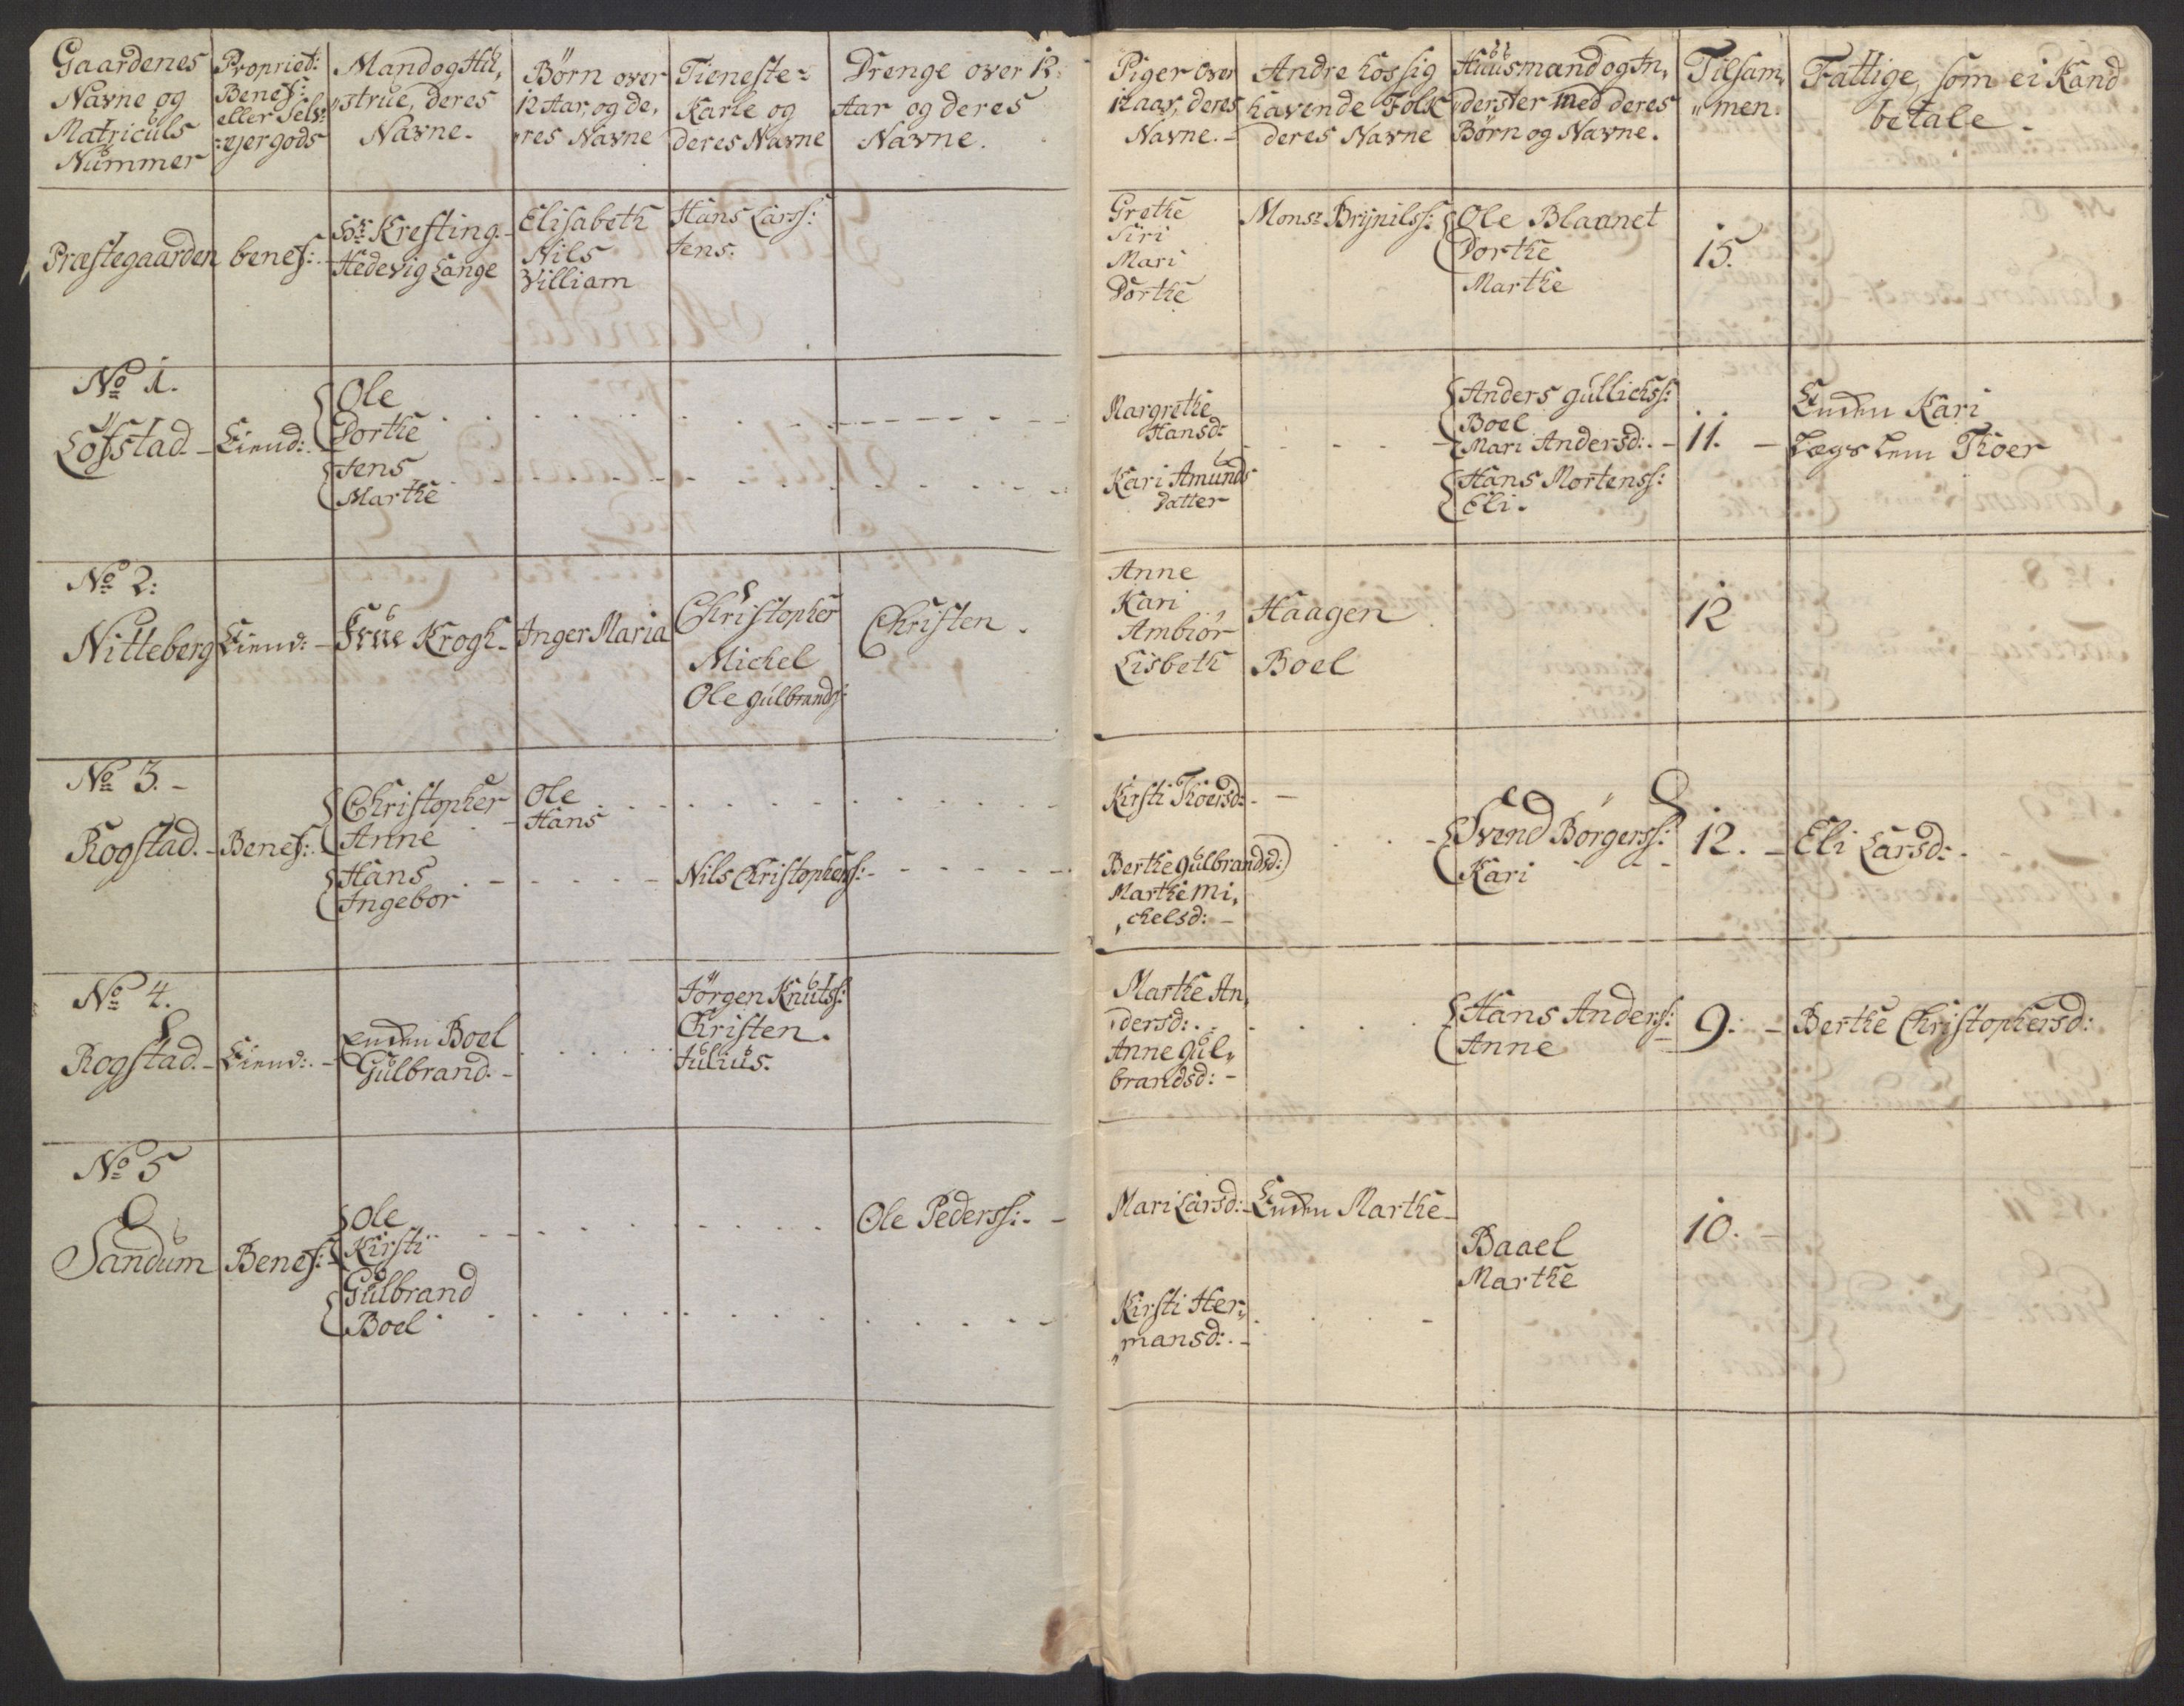 Gaardenes
Navne og
Matriculs
Nummer
Propriet:
Benef:
eller Selv:
:ejergods
Mand og Hu,
,,strue, deres
Navne.
Børn over
12 Aar, og de,
,,res Navne
Tieneste=
Karle og
deres Navne
Drenge over 12.
Aar og deres
Navne.
Piger over
12 aar, deres
Navne.-
Andre hos sig
havende Folk
deres Navne
Huusmænd og In,
,derster med deres
Børn og Navne.
Tilsam,
,,men.
Fattige, som ei Kand
betale.
Præstegaarden
benef:
Hr Kresting.
Hedevig Lange
Elisabeth
Nils
Villiam
Hans Larss:
Jens.
Grethe
Siri
Mari
Dorthe
Monsr Brynilss:
Ole Blaanet
Dorthe
Marthe
15.
No 1.
Løfstad.
Eiend:
Ole
Dorthe
Jens
Marthe
Margrethe
Hansd:
Kari Amunds
datter
Anders Gullichss:
Boel
Mari Andersd:
Hans Mortenss:
Eli.
11.
Enken Kari
Lægs lem Thoer
No 2:
Nitteberg
Eiend:
Frue Krogh
Inger Maria
Christopher
Michel
Ole Gulbrands:
Christen.
Anne
Kari
Ambiør
Lisbeth
Haagen
Boel
12
No 3.
Rogstad.
Benef:
Christopher
Anne
Hans
Ingebor
Ole
Hans
Nils Christophers:
Kirsti Thoersd:
Berthe Gulbrandsd:
Marthe Mi,
,chelsd:
Svend Børgerss:
Kari
12.
Eli Larsd:
No 4.
Rogstad.
Eiend:
Enken Boel
Gulbrand.
Jørgen Knutss:
Christen.
Julius.
Marthe An,
,dersd:
Anne Gul,
brandsd:
Hans Anderss:
Anne
9.
Berthe Christophersd:
No 5
Sandum
Benef:
Ole
Kirsti
Gulbrand
Boel
Ole Pederss:
Mari Larsd:
Kirsti Her,
,,mansd:
Enken Marthe
Baael
Marthe
10.